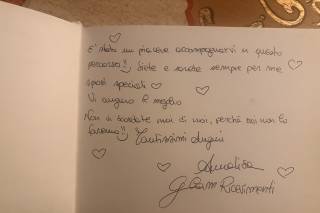 E' stato un piacere accompagnarvi in questo
percorso!! Siete e sarete sempre per me
sposi speciali
Vi auguro il meglio
Non vi scordate mai di noi, perché noi non lo
faremo!! Tantissimi Auguri
Annalisa